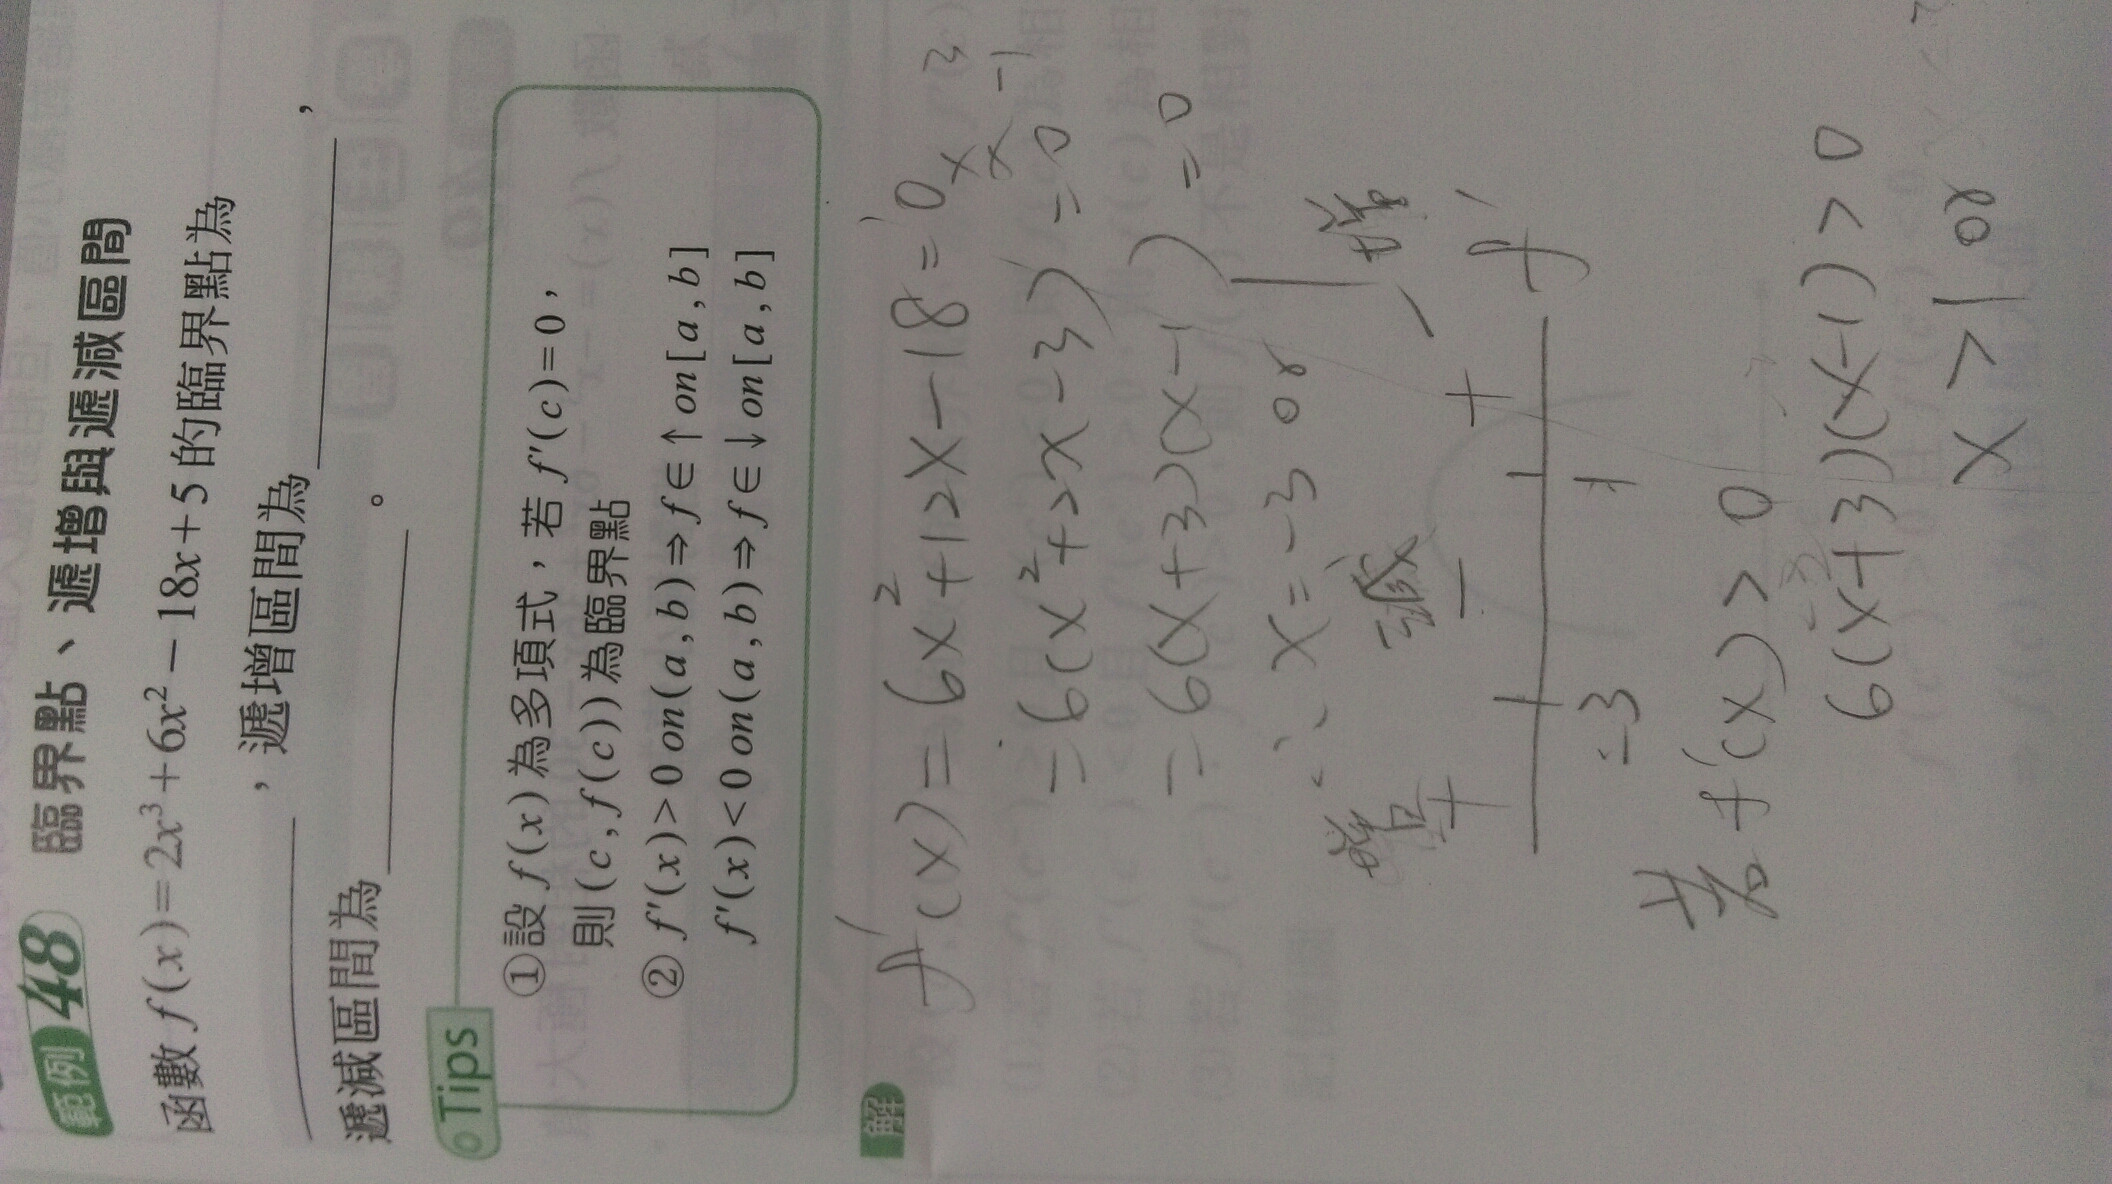 範例 48 臨界點、遞增與遞減區間
函數 f(x)=2x³+6x²-18x+5 的臨界點為
，遞增區間為 ，
遞減區間為 。
Tips
①設 f(x) 為多項式，若 f'(c)=0，
則 (c, f(c)) 為臨界點
② f'(x)>0 on (a, b) ⇒ f ∈ ↑ on [a, b]
f'(x)<0 on (a, b) ⇒ f ∈ ↓ on [a, b]
解
f'(x) = 6x²+12x-18=0
x 3
x -1
=6(x²+2x-3)=0
=6(x+3)(x-1)=0
∴ x=-3 or 1
增 減 增
+ - + f'
-3 1
若 f'(x)>0
6(x+3)(x-1)>0
x>1 or